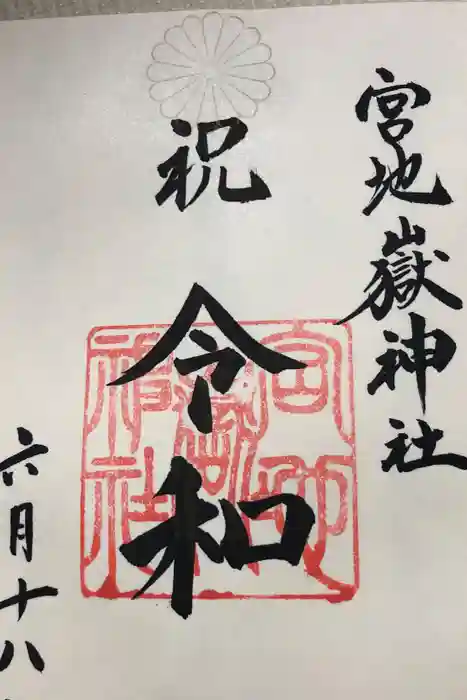 宮地嶽神社
祝
令和
六月十八
宮地嶽神社